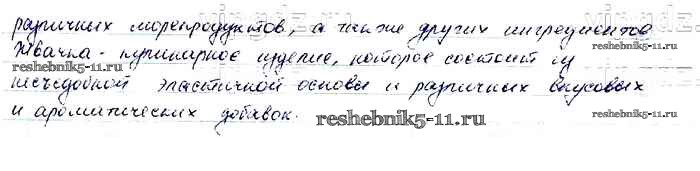 различных морепродуктов, а также других ингредиентов
Жвачка - кулинарное изделие, которое состоит из
reshebnik5-11.ru
reshebnik5-11.ru
несъедобной эластичной основы и различных вкусовых
и ароматических добавок.
reshebnik5-11.ru